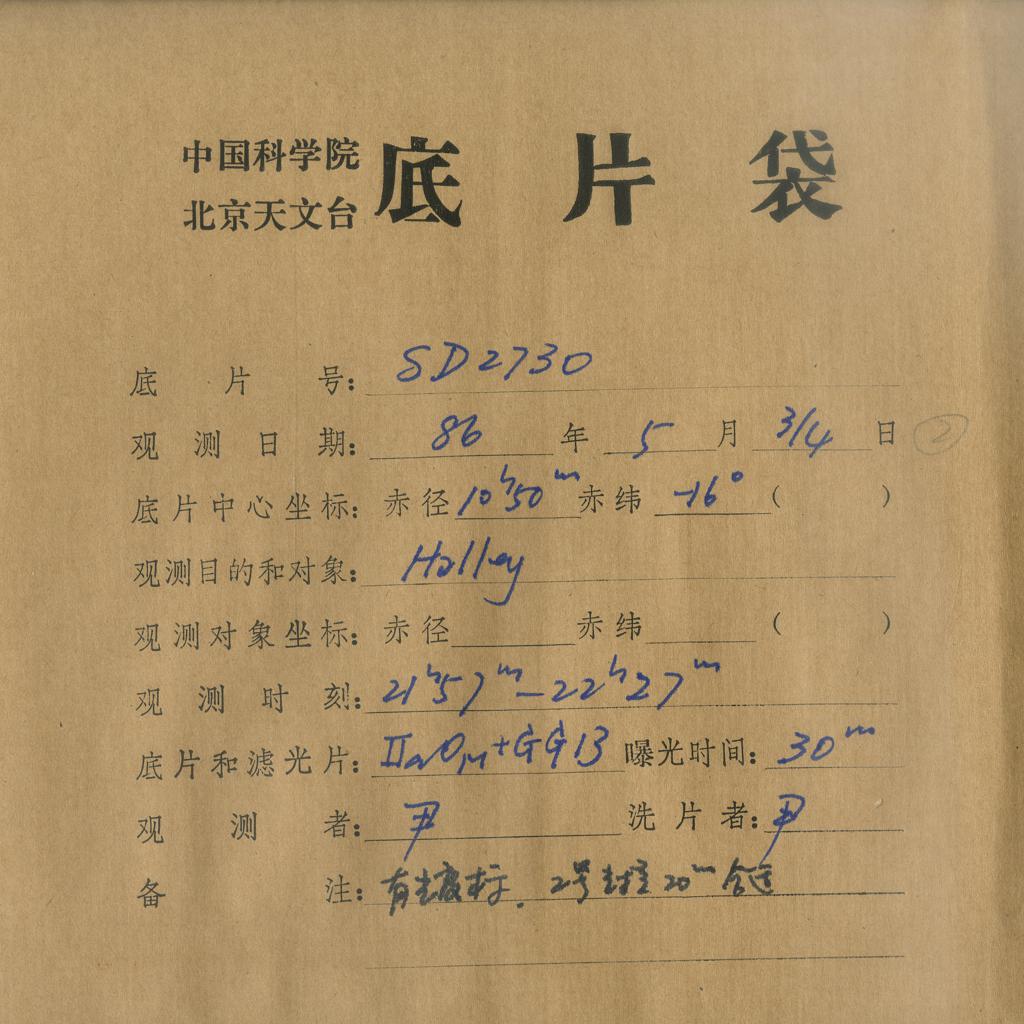 中国科学院
北京天文台
底片袋
底片号：SD2730
观测日期：86年5月3/4日 ②
底片中心坐标：赤径10ʰ50ᵐ赤纬-16°（ ）
观测目的和对象：Halley
观测对象坐标：赤径 赤纬 （ ）
观测时刻：21ʰ57ᵐ-22ʰ27ᵐ
底片和滤光片：IIaO+GG13 曝光时间：30ᵐ
观测者：尹 洗片者：尹
备注：有光度标. 2号 20ᵐ